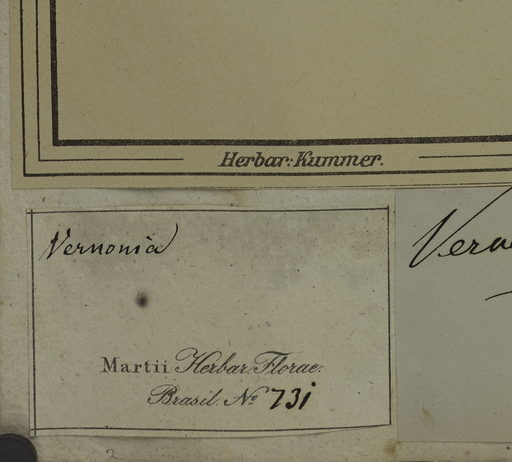 Herbar: Kummer.
Vernonia
Martii Herbar. Florae.
Brasil. No 731